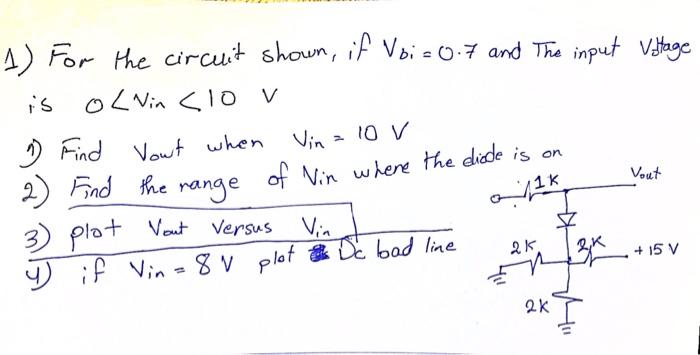 1) For the circuit shown, if Vbi = 0.7 and The input Voltage
is 0 < Vin < 10 V
1) Find Vout when Vin = 10 V
2) Find the range of Vin where the diode is on
3) plot Vout Versus Vin
4) if Vin = 8 V plot Dc load line
1K
Vout
2K
2K
+ 15 V
2K